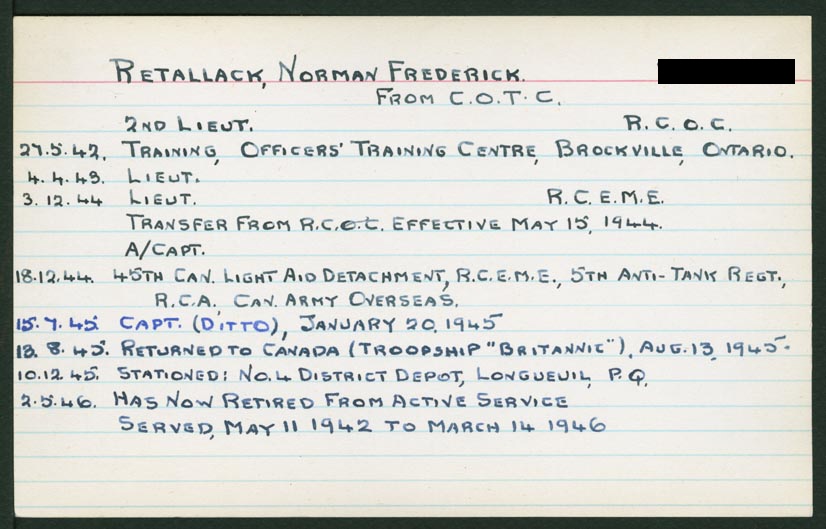 RETALLACK, NORMAN FREDERICK.
FROM C.O.T.C.
2ND LIEUT. R.C.O.C.
27.5.42. TRAINING, OFFICERS' TRAINING CENTRE, BROCKVILLE, ONTARIO.
4.4.43. LIEUT.
3.12.44 LIEUT. R.C.E.M.E.
TRANSFER FROM R.C.O.C. EFFECTIVE MAY 15, 1944.
A/CAPT.
18.12.44. 45TH CAN. LIGHT AID DETACHMENT, R.C.E.M.E., 5TH ANTI-TANK REGT.,
R.C.A. CAN. ARMY OVERSEAS.
15.7.45. CAPT. (DITTO), JANUARY 20, 1945
13.8.45. RETURNED TO CANADA (TROOPSHIP "BRITANNIC"), AUG.13, 1945.
10.12.45. STATIONED: NO.4 DISTRICT DEPOT, LONGUEUIL, P.Q.
2.5.46. HAS NOW RETIRED FROM ACTIVE SERVICE
SERVED, MAY 11 1942 TO MARCH 14 1946